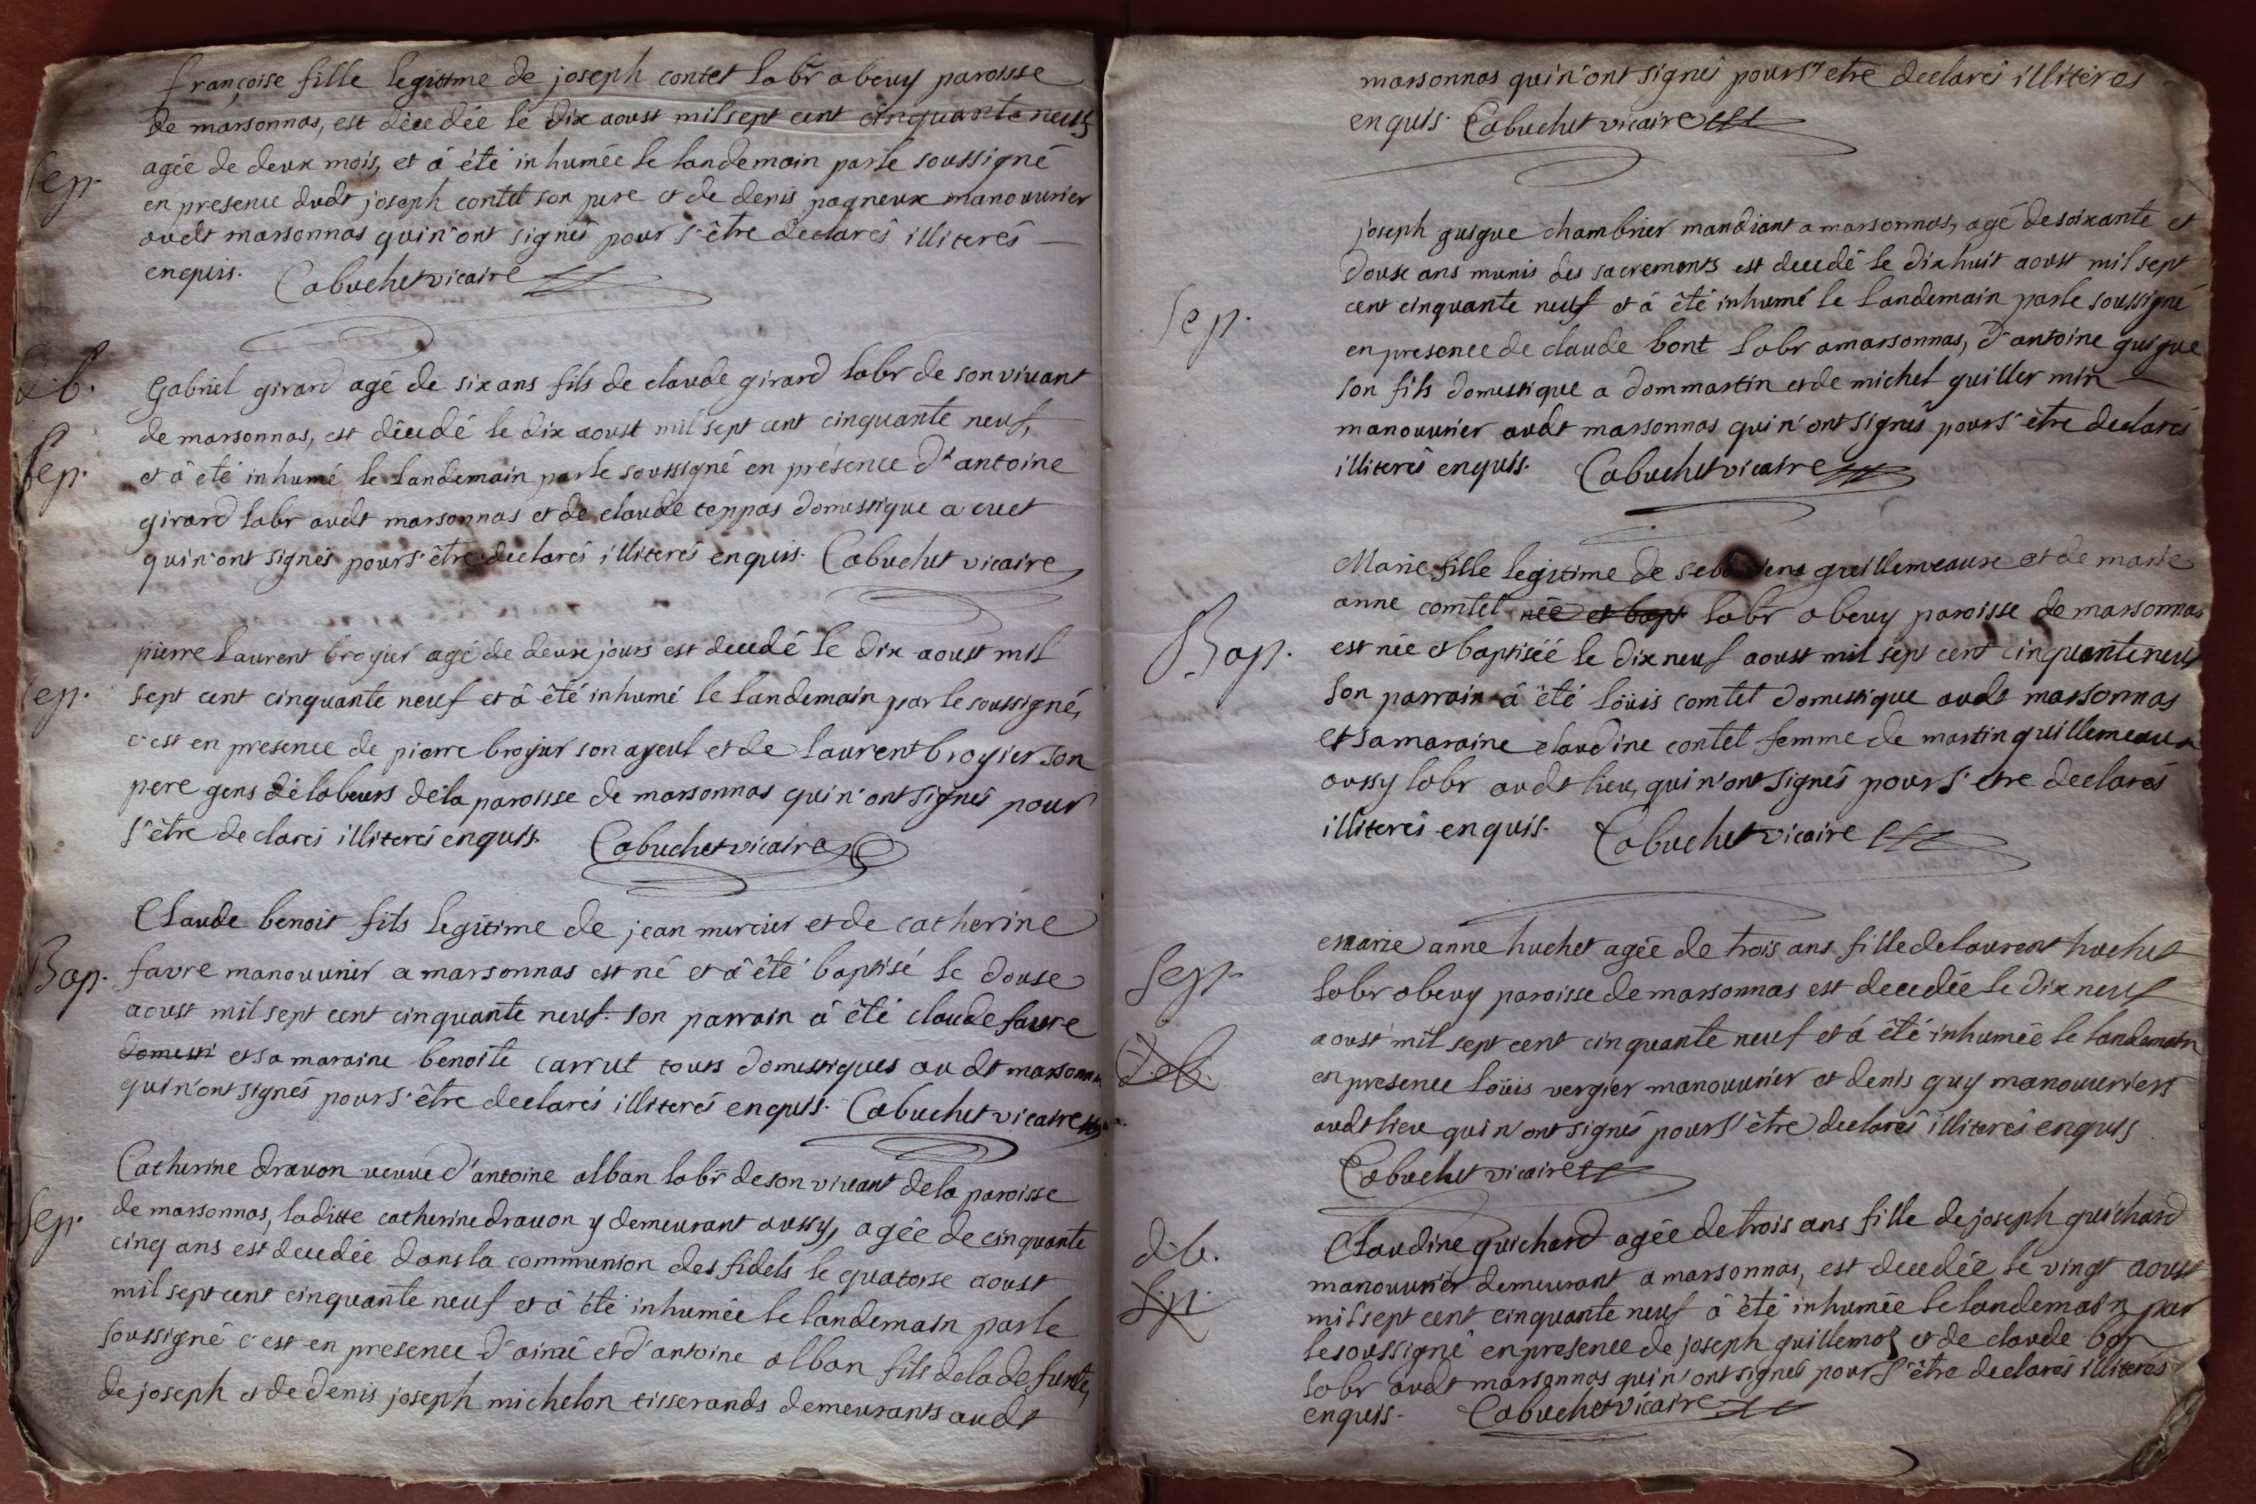 françoise fille legitime de joseph contet labr a beuy paroisse
de marsonnas, est decedée le dix aoust mil sept cent cinquante neuf
Sep. agée de deux mois, et â été inhumée le landemain par le soussigné
en presence dudt joseph contet son pere et de denis pagneux manouurier
audt marsonnas qui n'ont signés pour s'être declarés illiterés
enquis. Cabuchet vicaire
d.b. Gabriel girard agé de six ans fils de claude girard labr de son viuant
de marsonnas, est décédé le dix aoust mil sept cent cinquante neuf,
Sep. et â été inhumé le landemain par le soussigné en présence d'antoine
girard labr audt marsonnas et de claude teppas domestique a cuet
qui n'ont signés pour s'être declarés illiterés enquis. Cabuchet vicaire
pierre laurent broyier agé de deux jours est decedé le dix aoust mil
Sep. sept cent cinquante neuf et â été inhumé le landemain par le soussigné,
c'est en presence de pierre broyier son ayeul et de laurent broyier son
pere gens de labeurs de la paroisse de marsonnas qui n'ont signés pour
s'être declarés illiterés enquis. Cabuchet vicaire
Claude benoit fils legitime de jean mercier et de catherine
Bap. favre manouurier a marsonnas est né et â été baptisé le douse
aoust mil sept cent cinquante neuf. son parrain â été claude favre
domesti et sa maraine benoite carrut touts domestiques audt marsonnas
qui n'ont signés pour s'être declarés illiterés enquis. Cabuchet vicaire
Catherine drauon veuve d'antoine alban labr de son viuant de la paroisse
Sep. de marsonnas, laditte catherine drauon y demeurant aussy, agée de cinquante
cinq ans est decedée dans la communion des fidels le quatorse aoust
mil sept cent cinquante neuf et â été inhumée le landemain par le
soussigné c'est en presence d'aimé et d'antoine alban fils de la defunte,
de joseph et de denis joseph michelon tisserands demeurants audt
marsonnas qui n'ont signés pour s'etre declarés illiterés
enquis. Cabuchet vicaire
joseph guigue chambrier mandiant a marsonnas, agé de soixante et
douse ans munis des sacrements est decedé le dix huit aoust mil sept
Sep. cent cinquante neuf et â été inhumé le landemain par le soussigné
en presence de claude bont labr a marsonnas, d'antoine guigue
son fils domestique a dommartin et de michel guillermin
manouurier audt marsonnas qui n'ont signés pour s'être declarés
illiterés enquis. Cabuchet vicaire
Marie fille legitime de guillemeaux et de marie
anne comtet née et bapt labr a beuy paroisse de marsonnas
Bap. est née et baptisée le dix neuf aoust mil sept cent cinquante neuf
son parrain â été loüis comtet domestique audt marsonnas
et sa maraine claudine contet femme de martin guillemeaux
aussy labr audt lieu, qui n'ont signés pour s'etre declarés
illiterés enquis. Cabuchet vicaire
marie anne huchet agée de trois ans fille de laurent huchet
Sep. labr a beuy paroisse de marsonnas est decedée le dix neuf
aoust mil sept cent cinquante neuf et â été inhumée le landemain
d.b. en presence loüis vergier manouurier et denis guy manouuriers
audt lieu qui n'ont signés pour s'être declarés illiterés enquis
Cabuchet vicaire
d.b. Claudine guichard agée de trois ans fille de joseph guichard
manouurier demeurant a marsonnas, est decedée le vingt aoust
S.p. mil sept cent cinquante neuf â été inhumée le landemain par
le soussigné en presence de joseph guillemot et de claude bon
labr audt marsonnas qui n'ont signés pour s'être declarés illiterés
enquis. Cabuchet vicaire